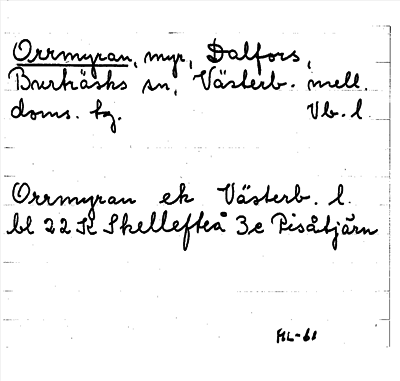 Orrmyran, myr, Dalfors,
Burträsks sn, Västerb. mell.
doms. tg. Vb. l.
Orrmyran ek Västerb. l.
bl 22 K Skellefteå 3e Pisåtjärn
HL-61